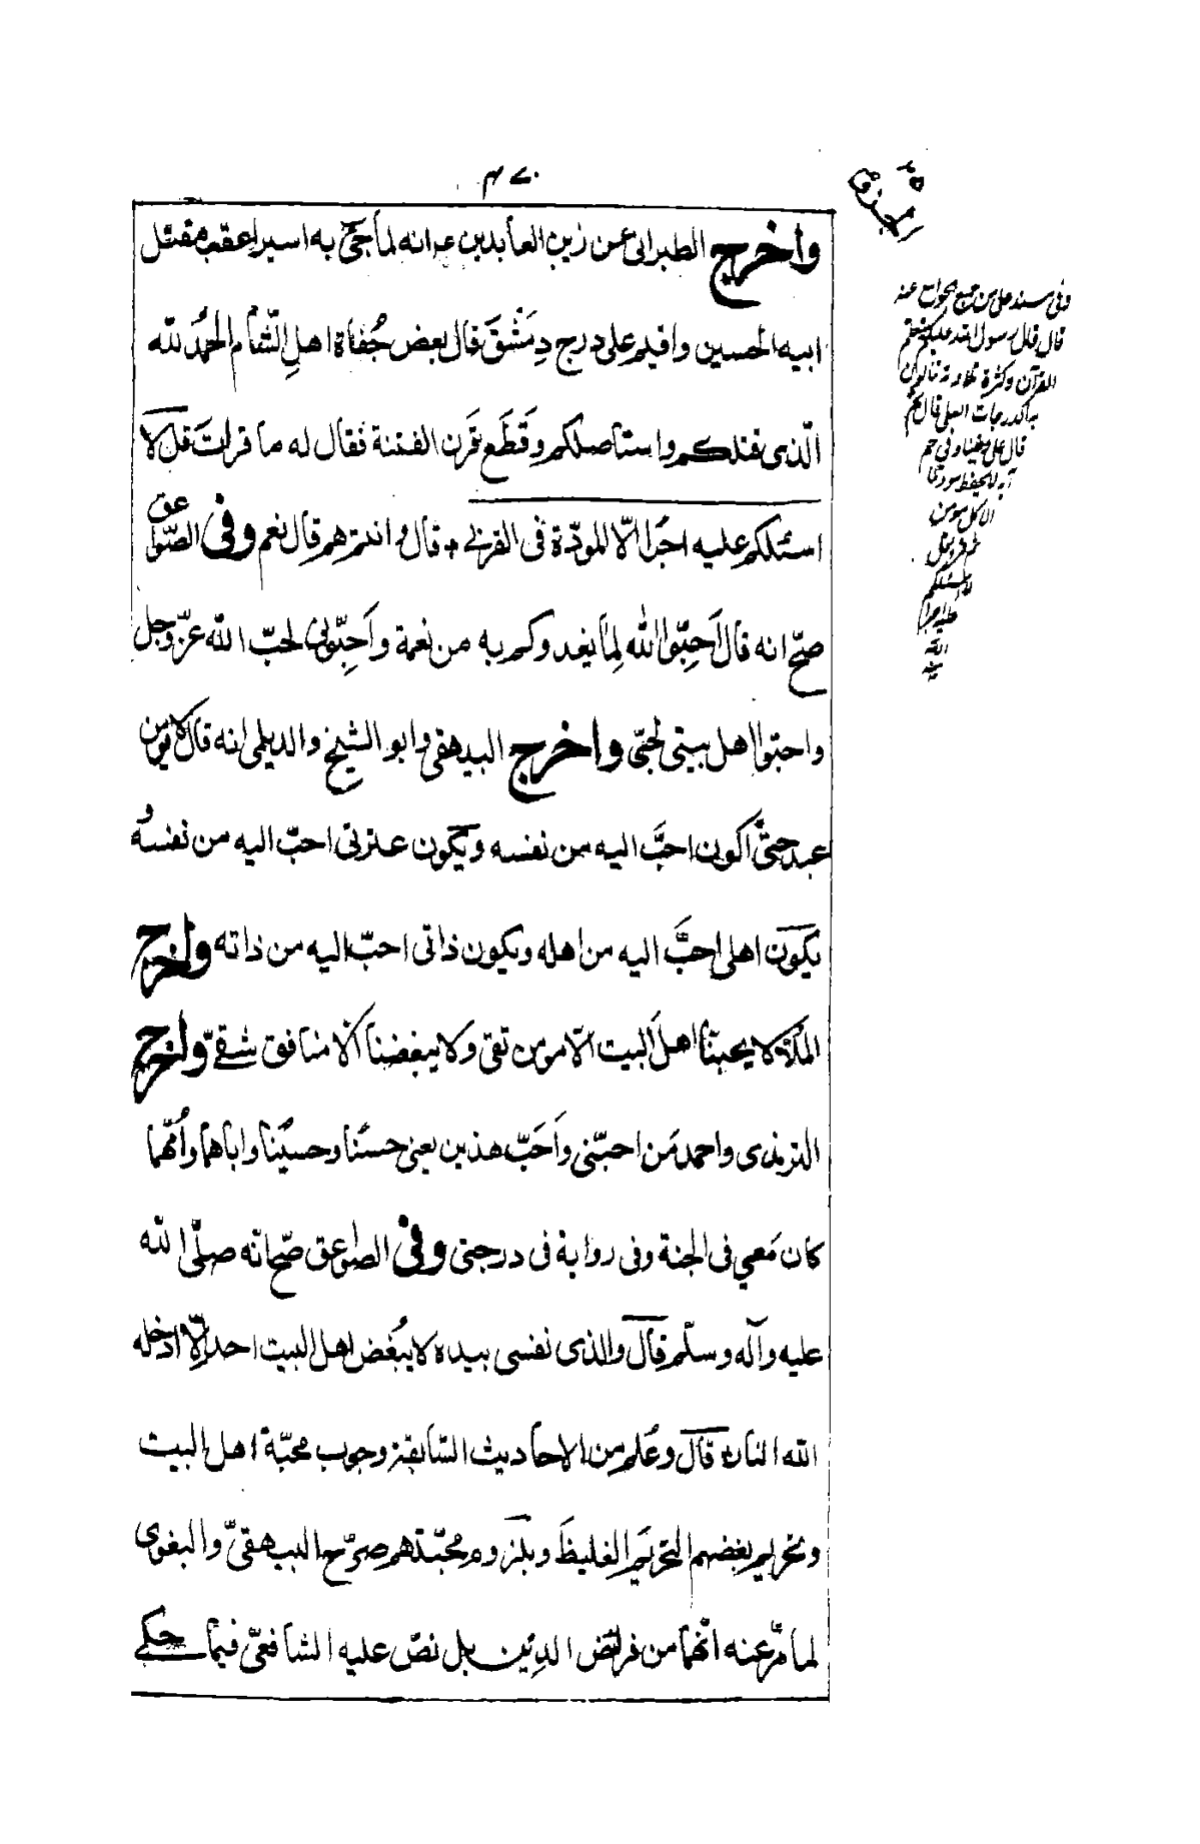 ٤٧٠
الجزء ٢٥
واخرج الطبرانى عن زين العابدين انه لما جئ به اسيرا عقب مقتل
ابيه الحسين واقيم على درج دِمَشْقَ قال بعض جُفاة اهلِ الشام الحمدُ لله
الّذى قتلكم واستاصلكم وقَطَع قَرن الفتنة فقال له ما قرات قل لا
اسئلكم عليه اجرا الّا المودّة فى القربى قال وانتم هم قال نعم وفى الصّواعق
صحّ انه قال اَحِبّوا الله لِما يغدوكم به من نعمة واَحِبّونى لحبّ الله عزّ وجل
واحبّوا اهل بيتى لحبّى واخرج البيهقى وابو الشيخ والديلمى انه قال لا يؤمن
عبد حتّى اكون احبَّ اليه من نفسه ويكون عترتى احبّ اليه من نفسه و
يكون اهلى احبَّ اليه من اهله ويكون ذاتى احبّ اليه من ذاته واخرج
الملّا لا يحبنا اهلَ البيت الّا مومن تقى ولا يبغضنا الّا منافق شقىّ واخرج
الترمذى واحمد مَن احبّنى واَحَبّ هذين يعنى حسنًا وحسينًا واباهما واُمّهما
كان مَعى فى الجنة وفى رواية فى درجتى وفى الصواعق صحّ انّه صلّى الله
عليه وآله وسلّم قال والذى نفسى بيده لا يُبغض اهل البيت احد الّا ادخله
الله النار قال وعُلم من الاحاديث السّابقة وجوب محبّة اهل البيت
وتحريم بغضهم التحريمَ الغليظَ وبلزوم محبّتهم صرّح البيهقىّ والبغوى
لما مرّ عنه انّها من فرائض الدين بل نصّ عليه الشافعىّ فيما حكى